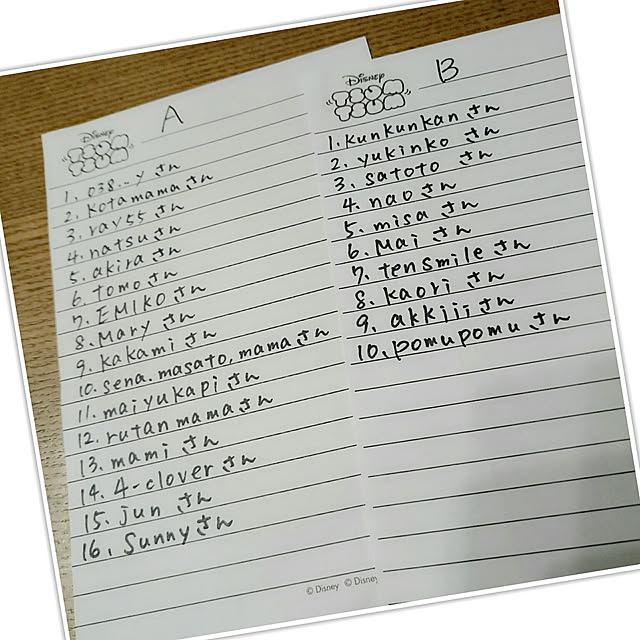 Disney
A
1. 038...y さん
2. kotamama さん
3. rav55 さん
4. natsu さん
5. akira さん
6. tomo さん
7. EMIKO さん
8. Mary さん
9. kakami さん
10. sena.masato.mama さん
11. maiyukapi さん
12. rutanmama さん
13. mami さん
14. 4-clover さん
15. jun さん
16. Sunny さん
© Disney
Disney
B
1. kunkunkan さん
2. yukinko さん
3. satoto さん
4. nao さん
5. misa さん
6. Mai さん
7. tensmile さん
8. kaori さん
9. akkiii さん
10. pomupomu さん
© Disney